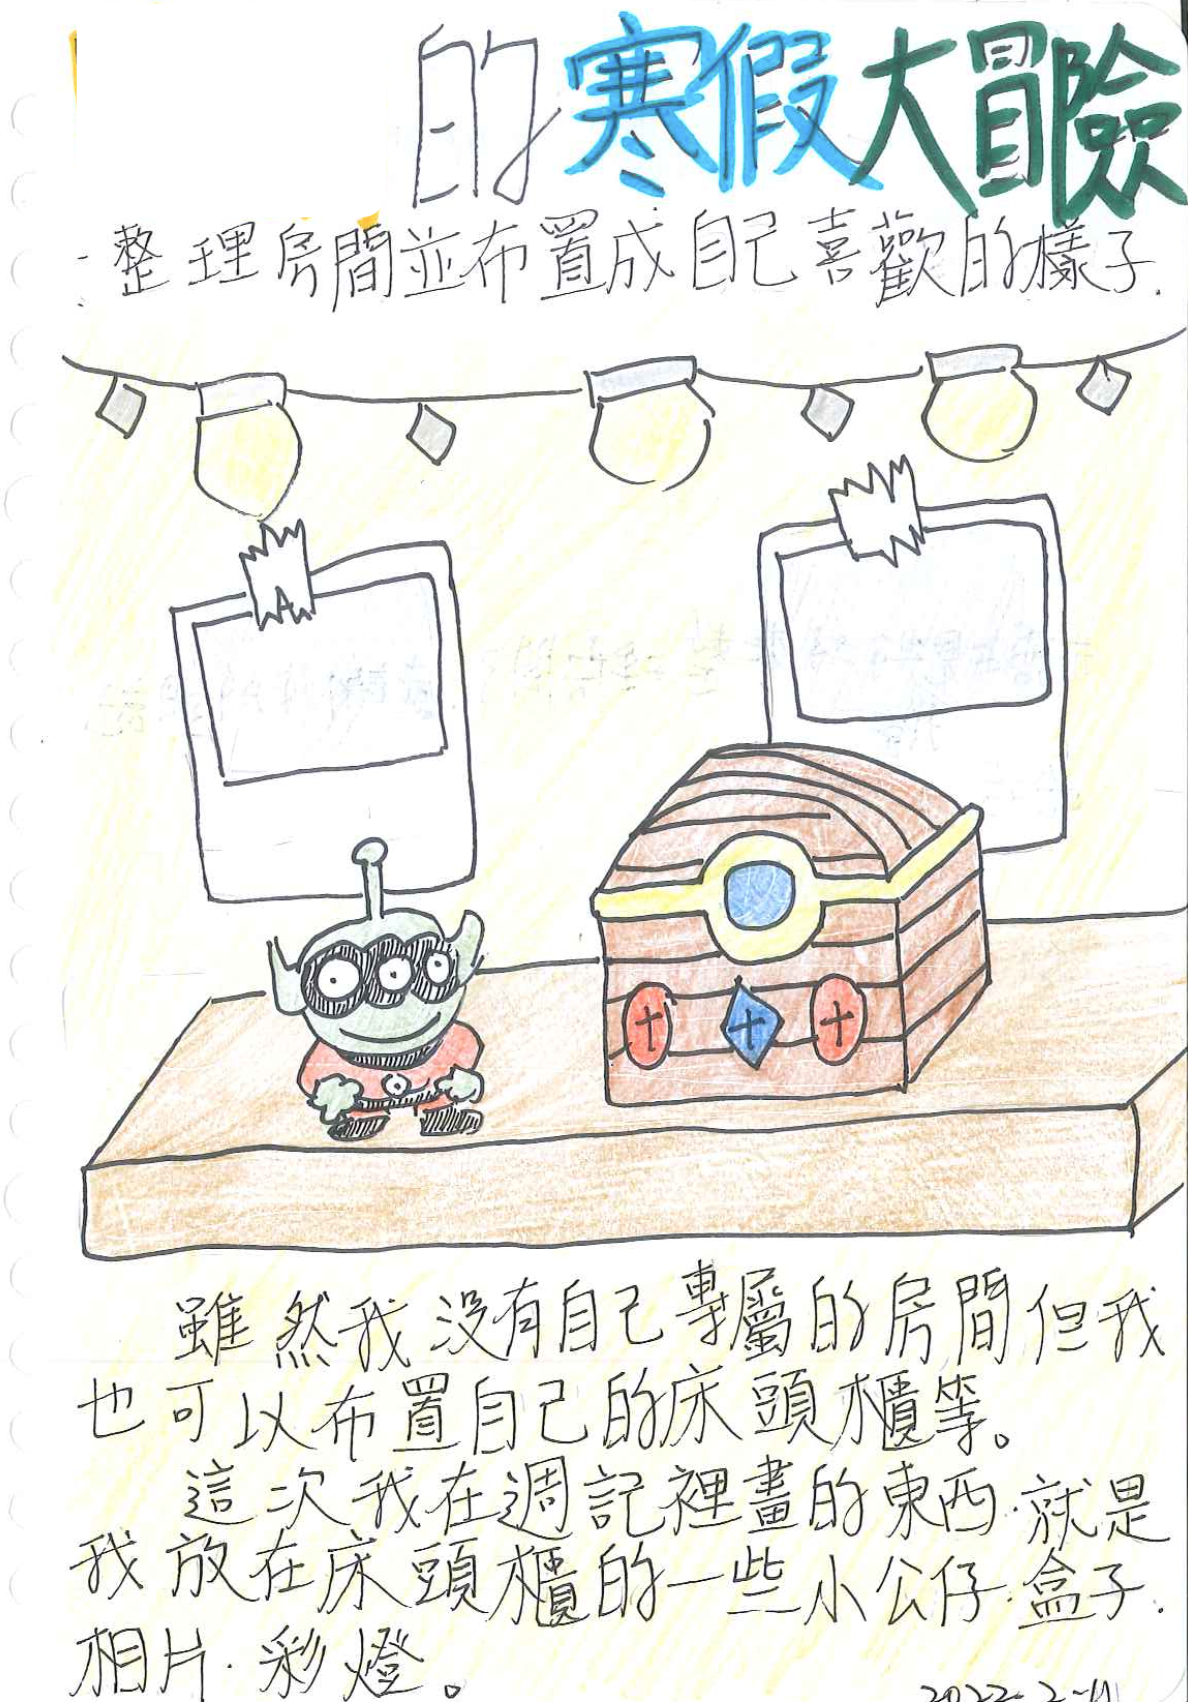 的寒假大冒險
整理房間並布置成自己喜歡的樣子.
雖然我沒有自己專屬的房間但我
也可以布置自己的床頭櫃等。
這次我在週記裡畫的東西.就是
我放在床頭櫃的一些小公仔.盒子.
相片.彩燈。
2022-2-11